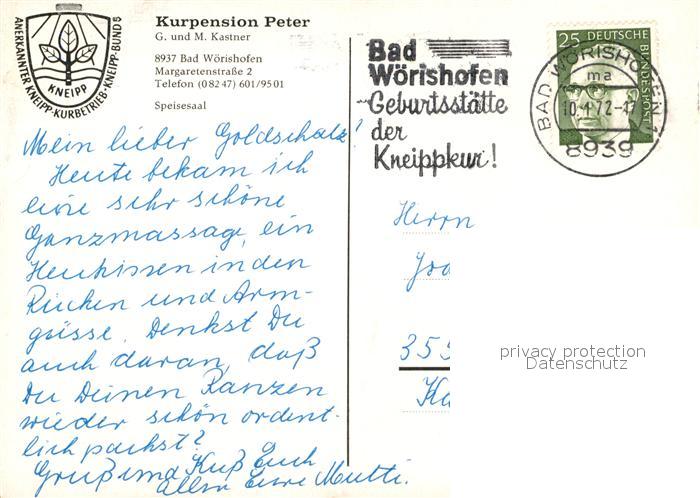 ANERKANNTER KNEIPP-KURBETRIEB · KNEIPP-BUND
KNEIPP
Kurpension Peter
G. und M. Kastner
8937 Bad Wörishofen
Margaretenstraße 2
Telefon (0 82 47) 601/95 01
Speisesaal
Bad
Wörishofen
Geburtsstätte
der
Kneippkur!
25 DEUTSCHE BUNDESPOST
BAD WÖRISHOFEN 1
ma
8939
Mein lieber Goldschatz!
Heute bekam ich
eine sehr schöne
Ganzmassage, ein
Heukissen in den
Rücken und Arm-
güsse. Denkst Du
auch daran, daß
Du Deinen Ranzen
wieder schön ordent-
lich packst?
Gruß und Kuß Euch
allen Eure Mutti.
Herrn
355
privacy protection
Datenschutz